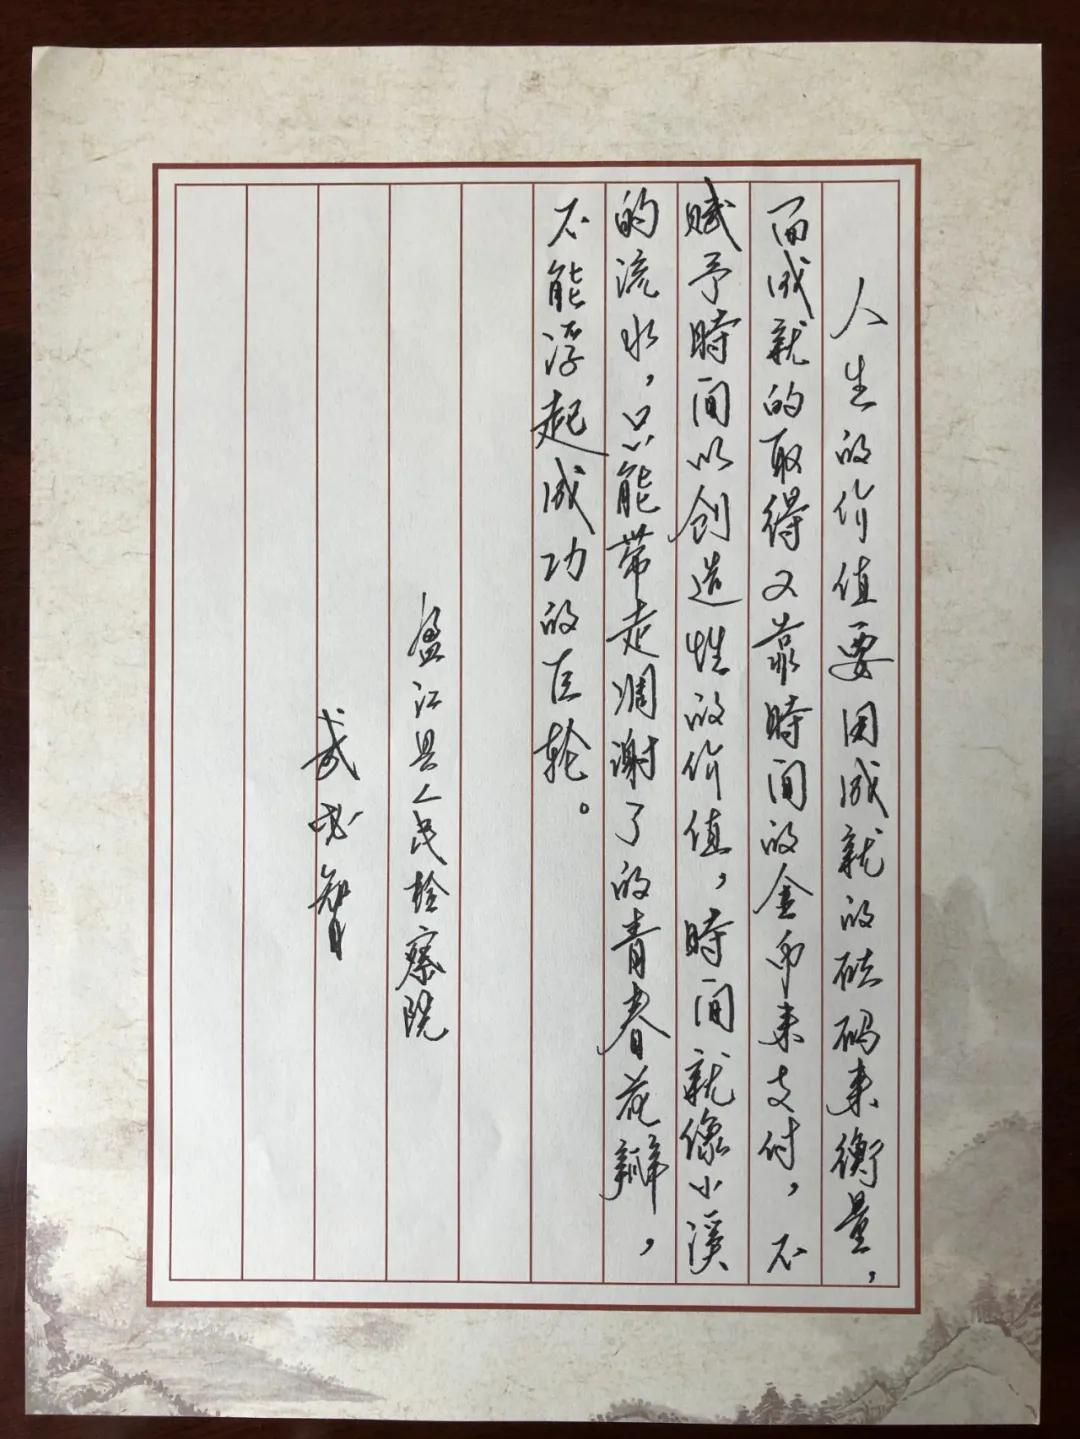 人生的价值要用成就的砝码来衡量，
而成就的取得又靠時间的金币来支付，不
赋予時间以创造性的价值，時间就像小溪
的流水，只能带走凋谢了的青春花瓣，
不能浮起成功的巨轮。
盈江县人民检察院